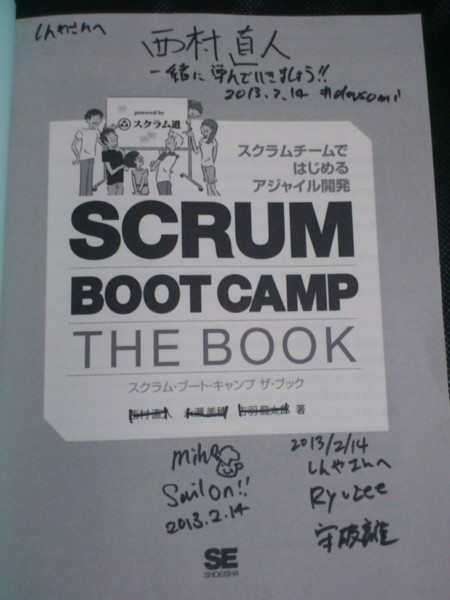 しんやさんへ
西村直人
一緒に学んでいきましょう!!
2013.2.14 #devsumi
powered by
スクラム道
スクラムチームで
はじめる
アジャイル開発
SCRUM
BOOT CAMP
THE BOOK
スクラム・ブート・キャンプ ザ・ブック
西村直人 永瀬美穂 吉羽龍太郎 著
miho
Sail On!!
2013.2.14
2013/2/14
しんやさんへ
Ryuzee
守破離
SE
SHOEISHA